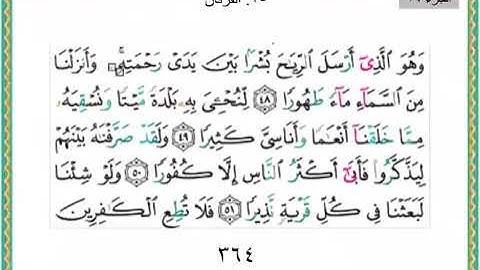 ٢٥. الفرقان
وَهُوَ ٱلَّذِىٓ أَرْسَلَ ٱلرِّيَـٰحَ بُشْرًۢا بَيْنَ يَدَىْ رَحْمَتِهِۦ ۚ وَأَنزَلْنَا
مِنَ ٱلسَّمَآءِ مَآءً طَهُورًا ٤٨ لِّنُحْـِۧىَ بِهِۦ بَلْدَةً مَّيْتًا وَنُسْقِيَهُۥ
مِمَّا خَلَقْنَآ أَنْعَـٰمًا وَأَنَاسِىَّ كَثِيرًا ٤٩ وَلَقَدْ صَرَّفْنَـٰهُ بَيْنَهُمْ
لِيَذَّكَّرُوا۟ فَأَبَىٰٓ أَكْثَرُ ٱلنَّاسِ إِلَّا كُفُورًا ٥٠ وَلَوْ شِئْنَا
لَبَعَثْنَا فِى كُلِّ قَرْيَةٍ نَّذِيرًا ٥١ فَلَا تُطِعِ ٱلْكَـٰفِرِينَ
٣٦٤